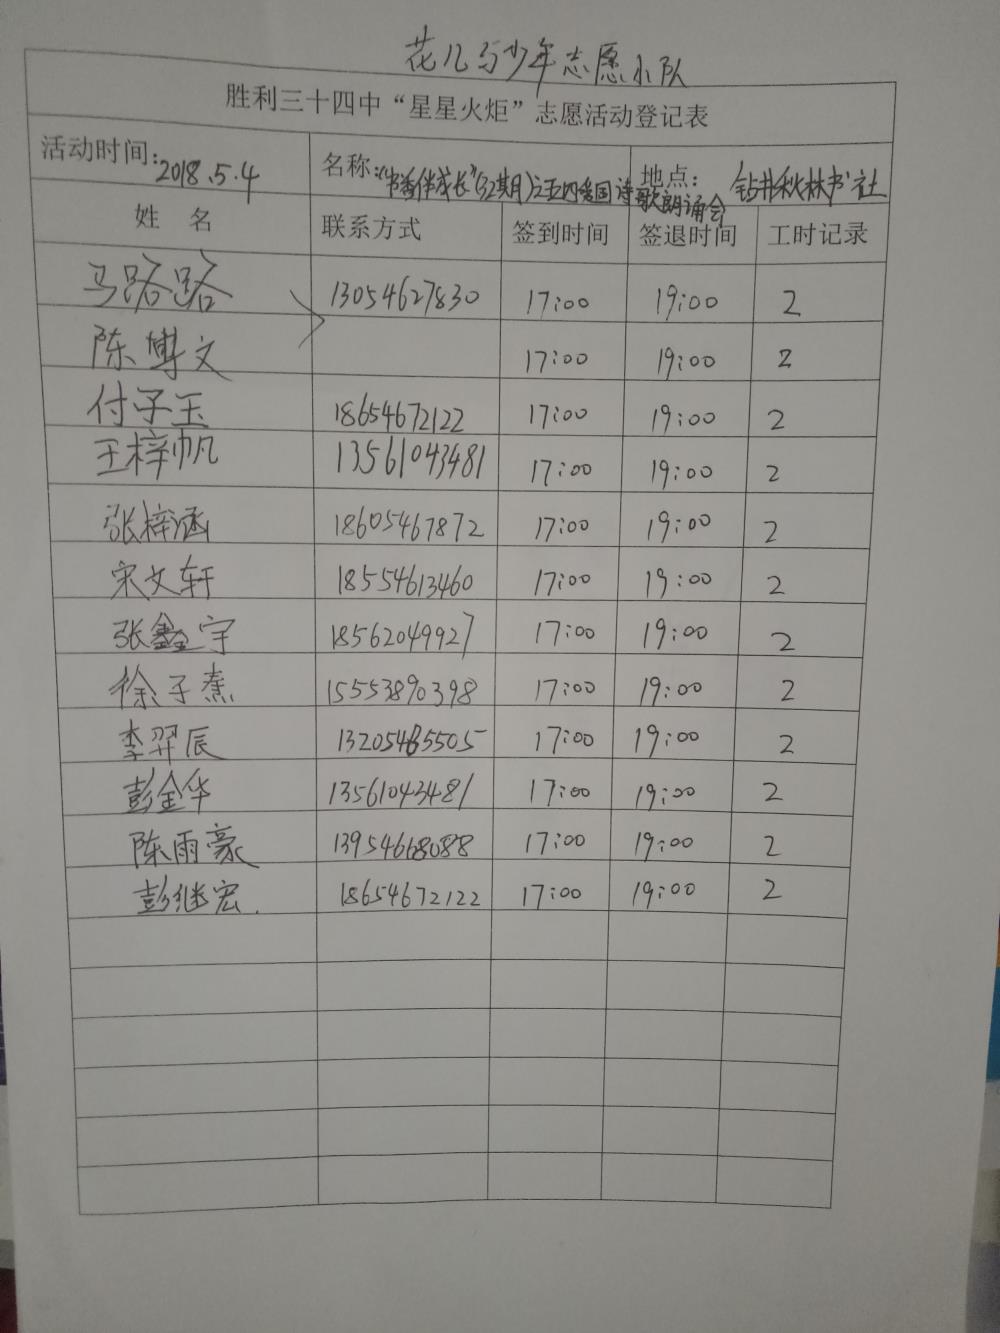 花儿与少年志愿小队
胜利三十四中“星星火炬”志愿活动登记表
活动时间:2018.5.4 名称:“书香伴成长”(32期)之五四爱国诗歌朗诵会 地点: 钻井秋林书社
姓 名 联系方式 签到时间 签退时间 工时记录
马路路 13054627830 17:00 19:00 2
陈博文 17:00 19:00 2
付子玉 18654672122 17:00 19:00 2
王梓帆 13561043481 17:00 19:00 2
张梓涵 18605467872 17:00 19:00 2
宋文轩 18554613460 17:00 19:00 2
张鑫宇 18562049927 17:00 19:00 2
徐子熏 15553890398 17:00 19:00 2
李羿辰 13205485505 17:00 19:00 2
彭金华 13561043481 17:00 19:00 2
陈雨豪 13954668088 17:00 19:00 2
彭继宏. 18654672122 17:00 19:00 2